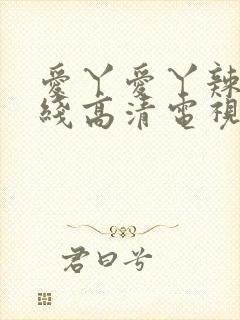 愛丫愛丫辣
綫高清電視
君曰兮